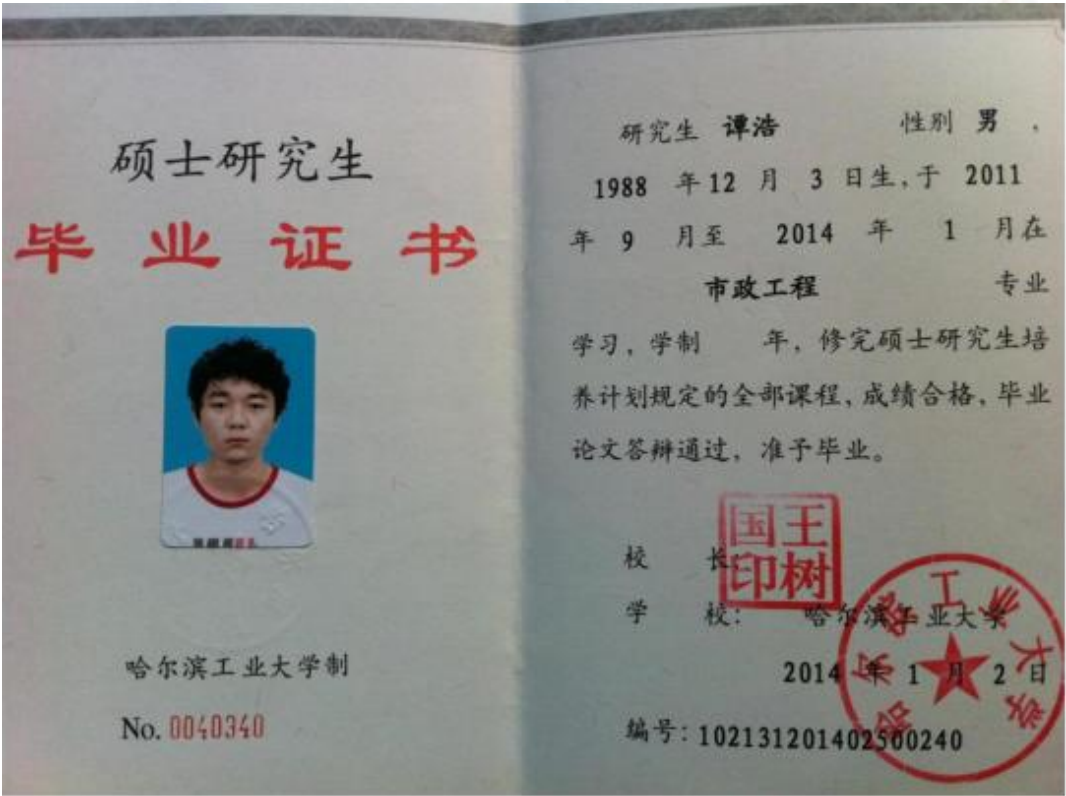 硕士研究生
毕业证书
哈尔滨工业大学制
No. 0040340
研究生 谭浩 性别 男 ,
1988 年 12 月 3 日生,于 2011
年 9 月至 2014 年 1 月在
市政工程 专业
学习,学制 年,修完硕士研究生培
养计划规定的全部课程,成绩合格,毕业
论文答辩通过,准予毕业。
校 长:
王树
国印
学 校: 哈尔滨工业大学
2014 年 1 月 2 日
哈尔滨工业大学
编号:102131201402500240